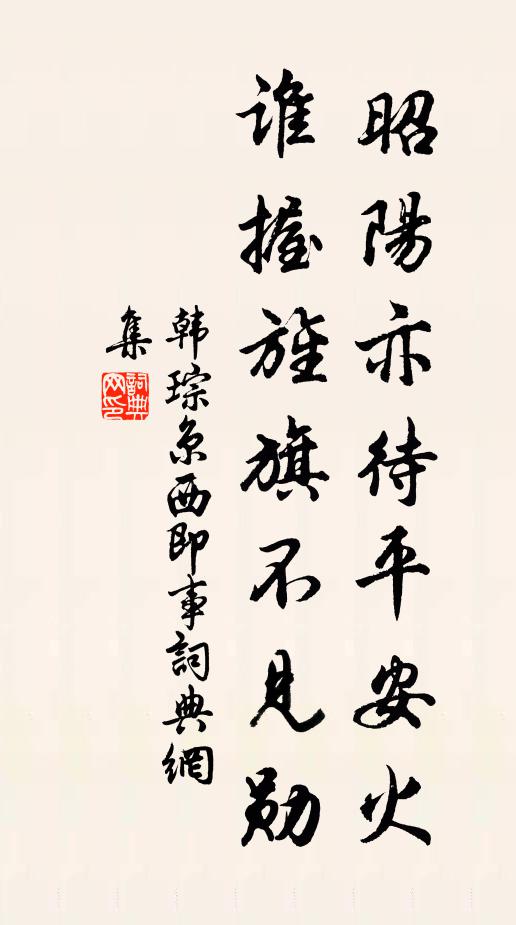 昭陽亦待平安火
誰握旌旗不見勛
韩琮京西即事詞典網
集
詞典网印